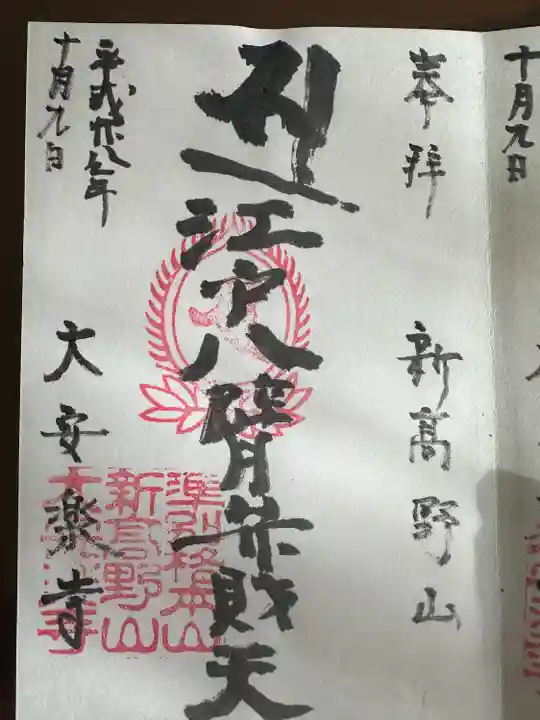 十月九日
奉拝
新高野山
江戸八臂弁財天
平成廿八年
十月九日
大安楽寺
準別格本山
新高野山
大安楽寺